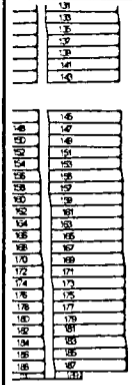 131
133
135
137
139
141
143
145
148 147
150 149
152 151
154 153
156 155
158 157
160 159
162 161
164 163
166 165
168 167
170 169
172 171
174 173
176 175
178 177
180 179
182 181
184 183
186 185
188 187